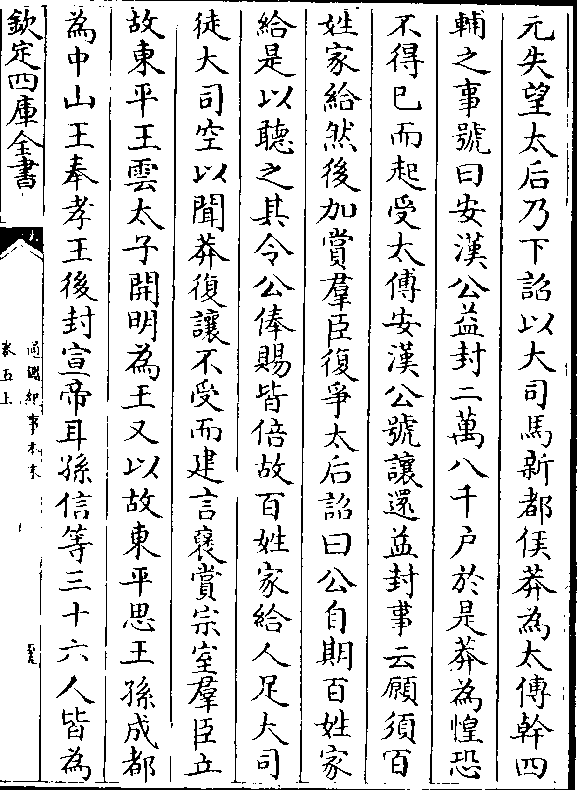 元失望太后乃下詔以大司馬新都侯莽為太傅幹四
輔之事號曰安漢公益封二萬八千户於是莽為惶恐
不得已而起受太傅安漢公號讓還益封事云願須百
姓家給然後加賞羣臣復爭太后詔曰公自期百姓家
給是以聽之其令公俸賜皆倍故百姓家給人足大司
徒大司空以聞莽復讓不受而建言襃賞宗室羣臣立
故東平王雲太子開明為王又以故東平思王孫成都
為中山王奉孝王後封宣帝耳孫信等三十六人皆為
欽定四庫全書
通鑑紀事本末
卷五上